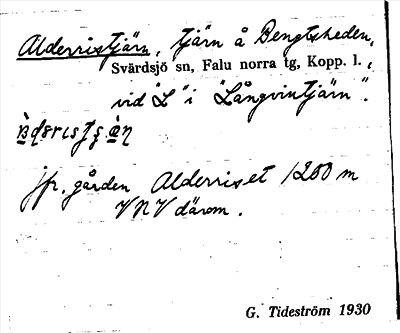 Alderristjärn, tjärn å Bengtsheden,
Svärdsjö sn, Falu norra tg, Kopp. l.,
vid "L" i "Långvintjärn".
jfr. gården Alderriset 1200 m
VNV därom.
G. Tideström 1930